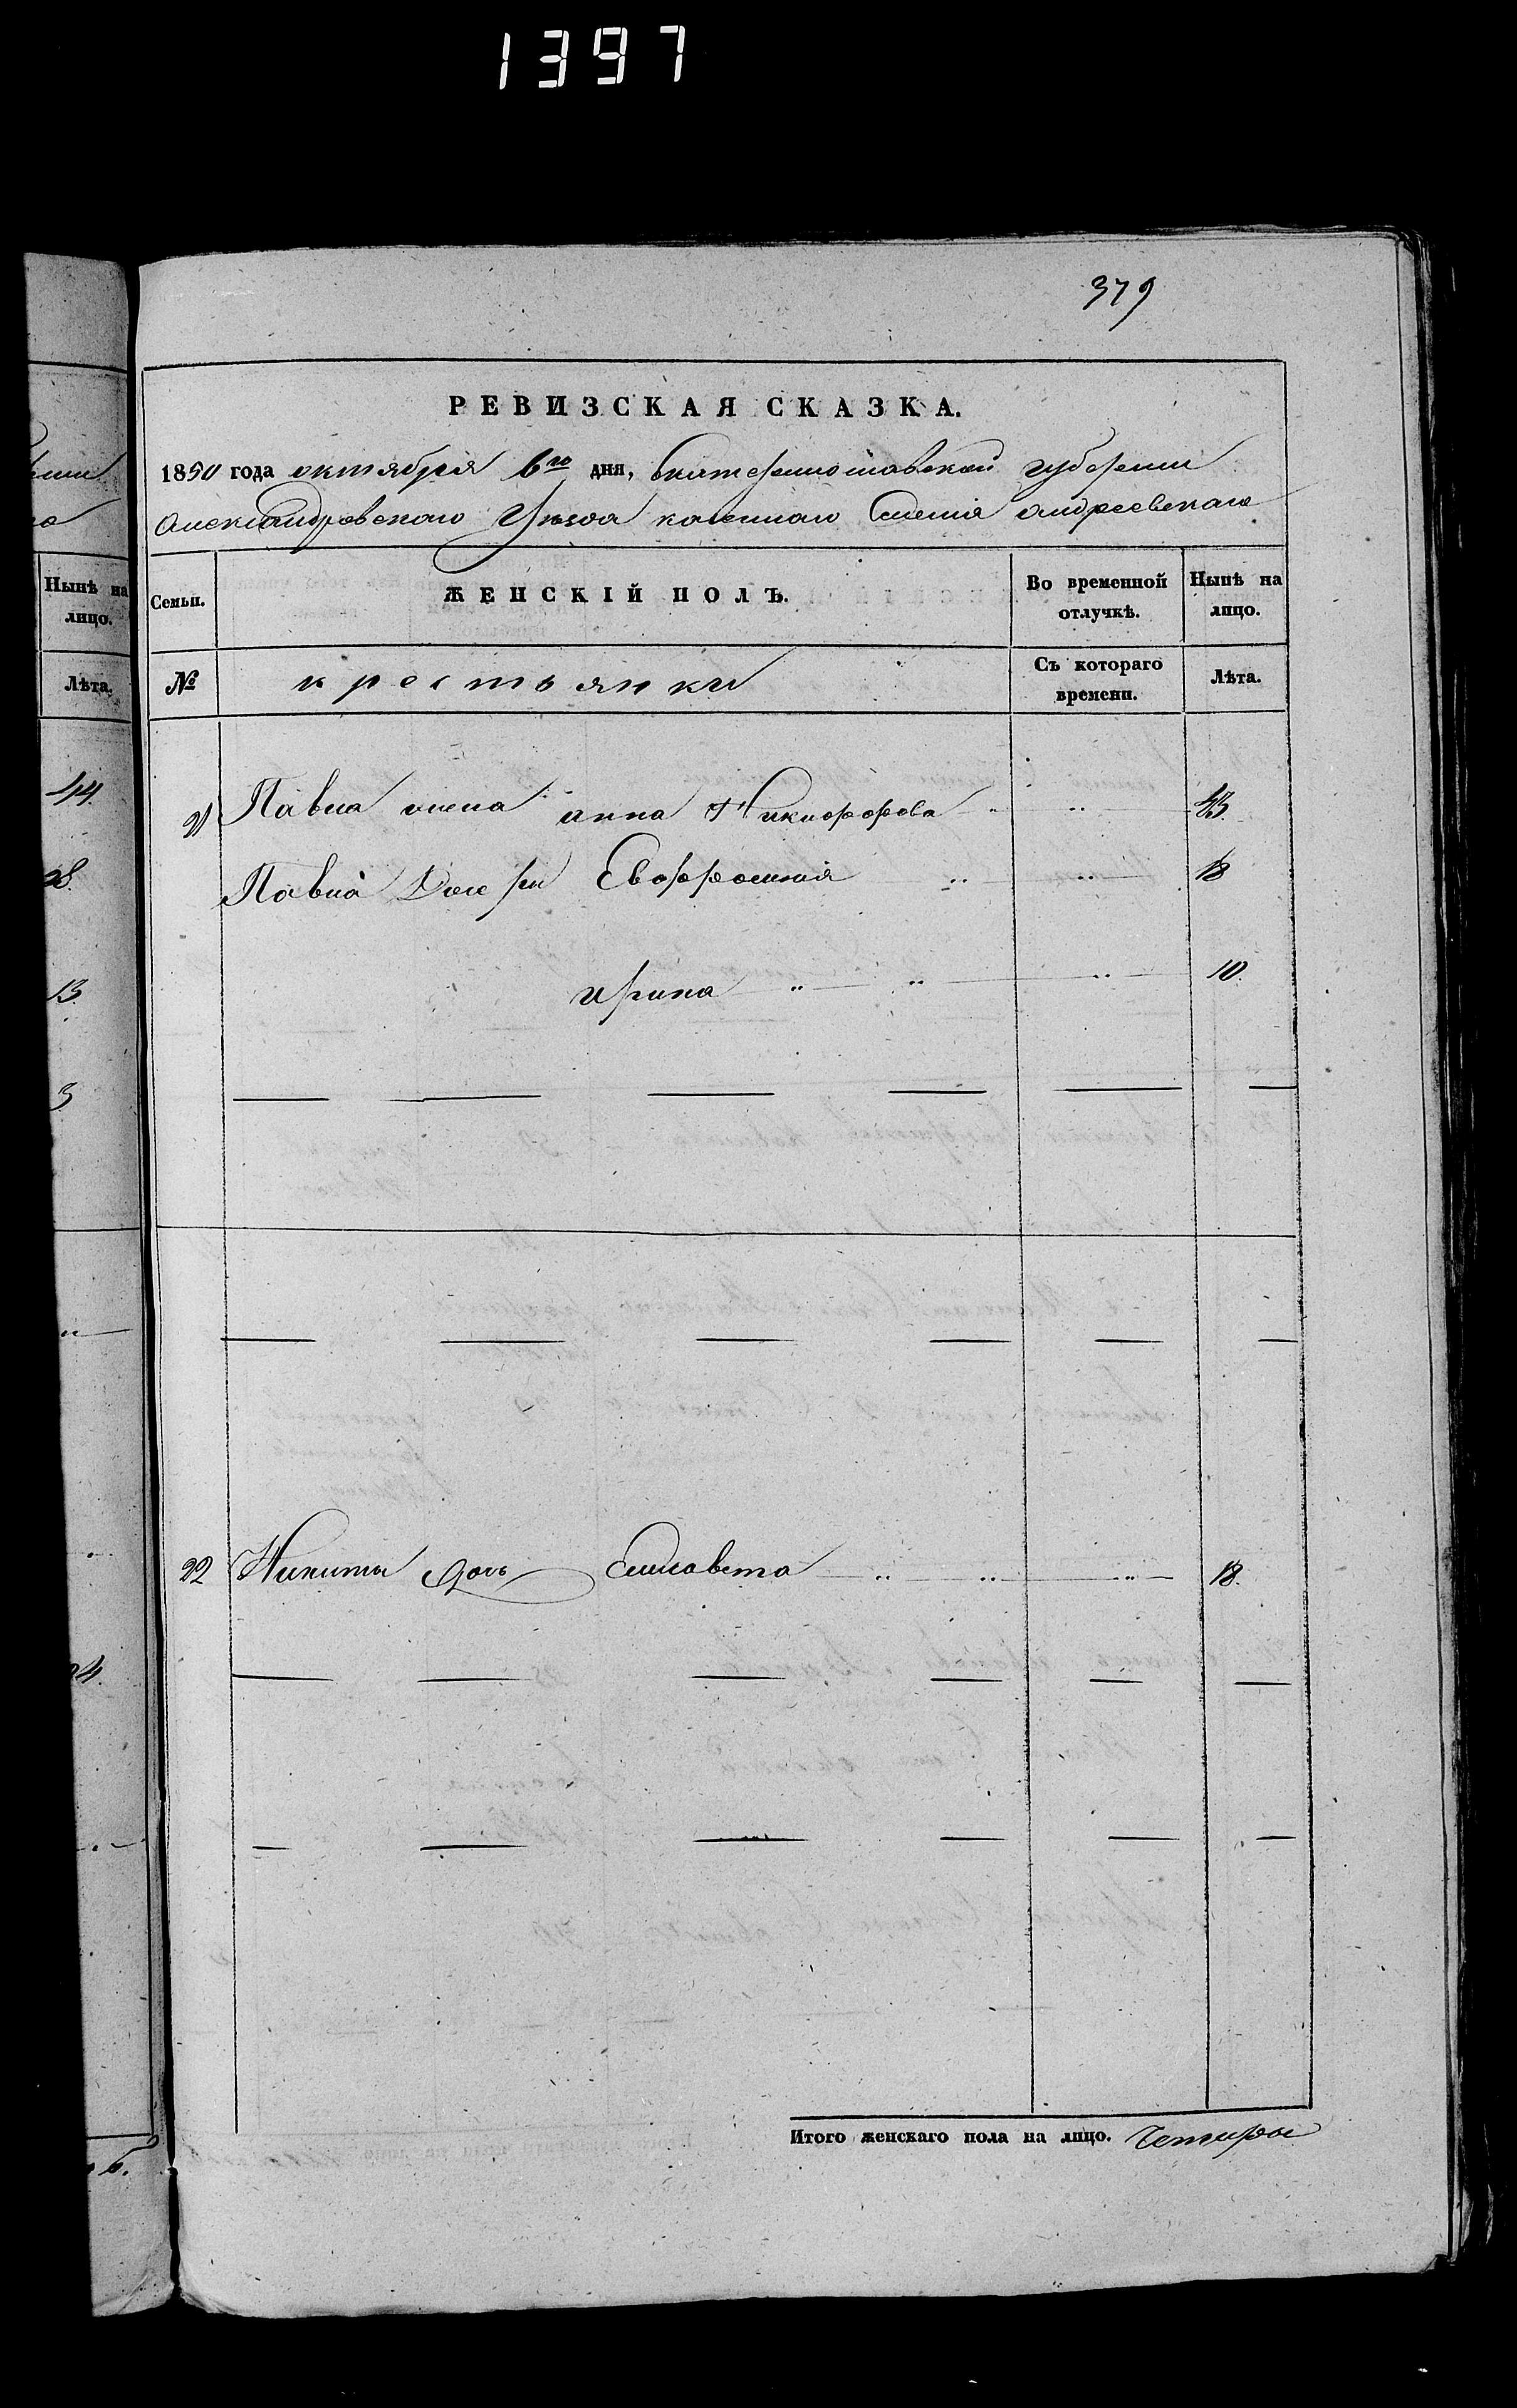 1397
379
РЕВИЗСКАЯ СКАЗКА.
1850 года октября 6го дня, Екатеринославской губернии
Александровского Уезда казенного Селения Андреевского
Нынѣ на лицо.
Семьи.
ЖЕНСКІЙ ПОЛЪ.
Во временной отлучкѣ.
Нынѣ на лицо.
Лѣта.
№
крестьянки
Съ котораго времени.
Лѣта.
44.
21 Павла жена анна Никифорова 43.
28.
Павла Дочери Евфросиния 18
13.
ирина 10.
3
22 Никиты дочь Елисавета 18.
Итого женскаго пола на лицо. Четыре